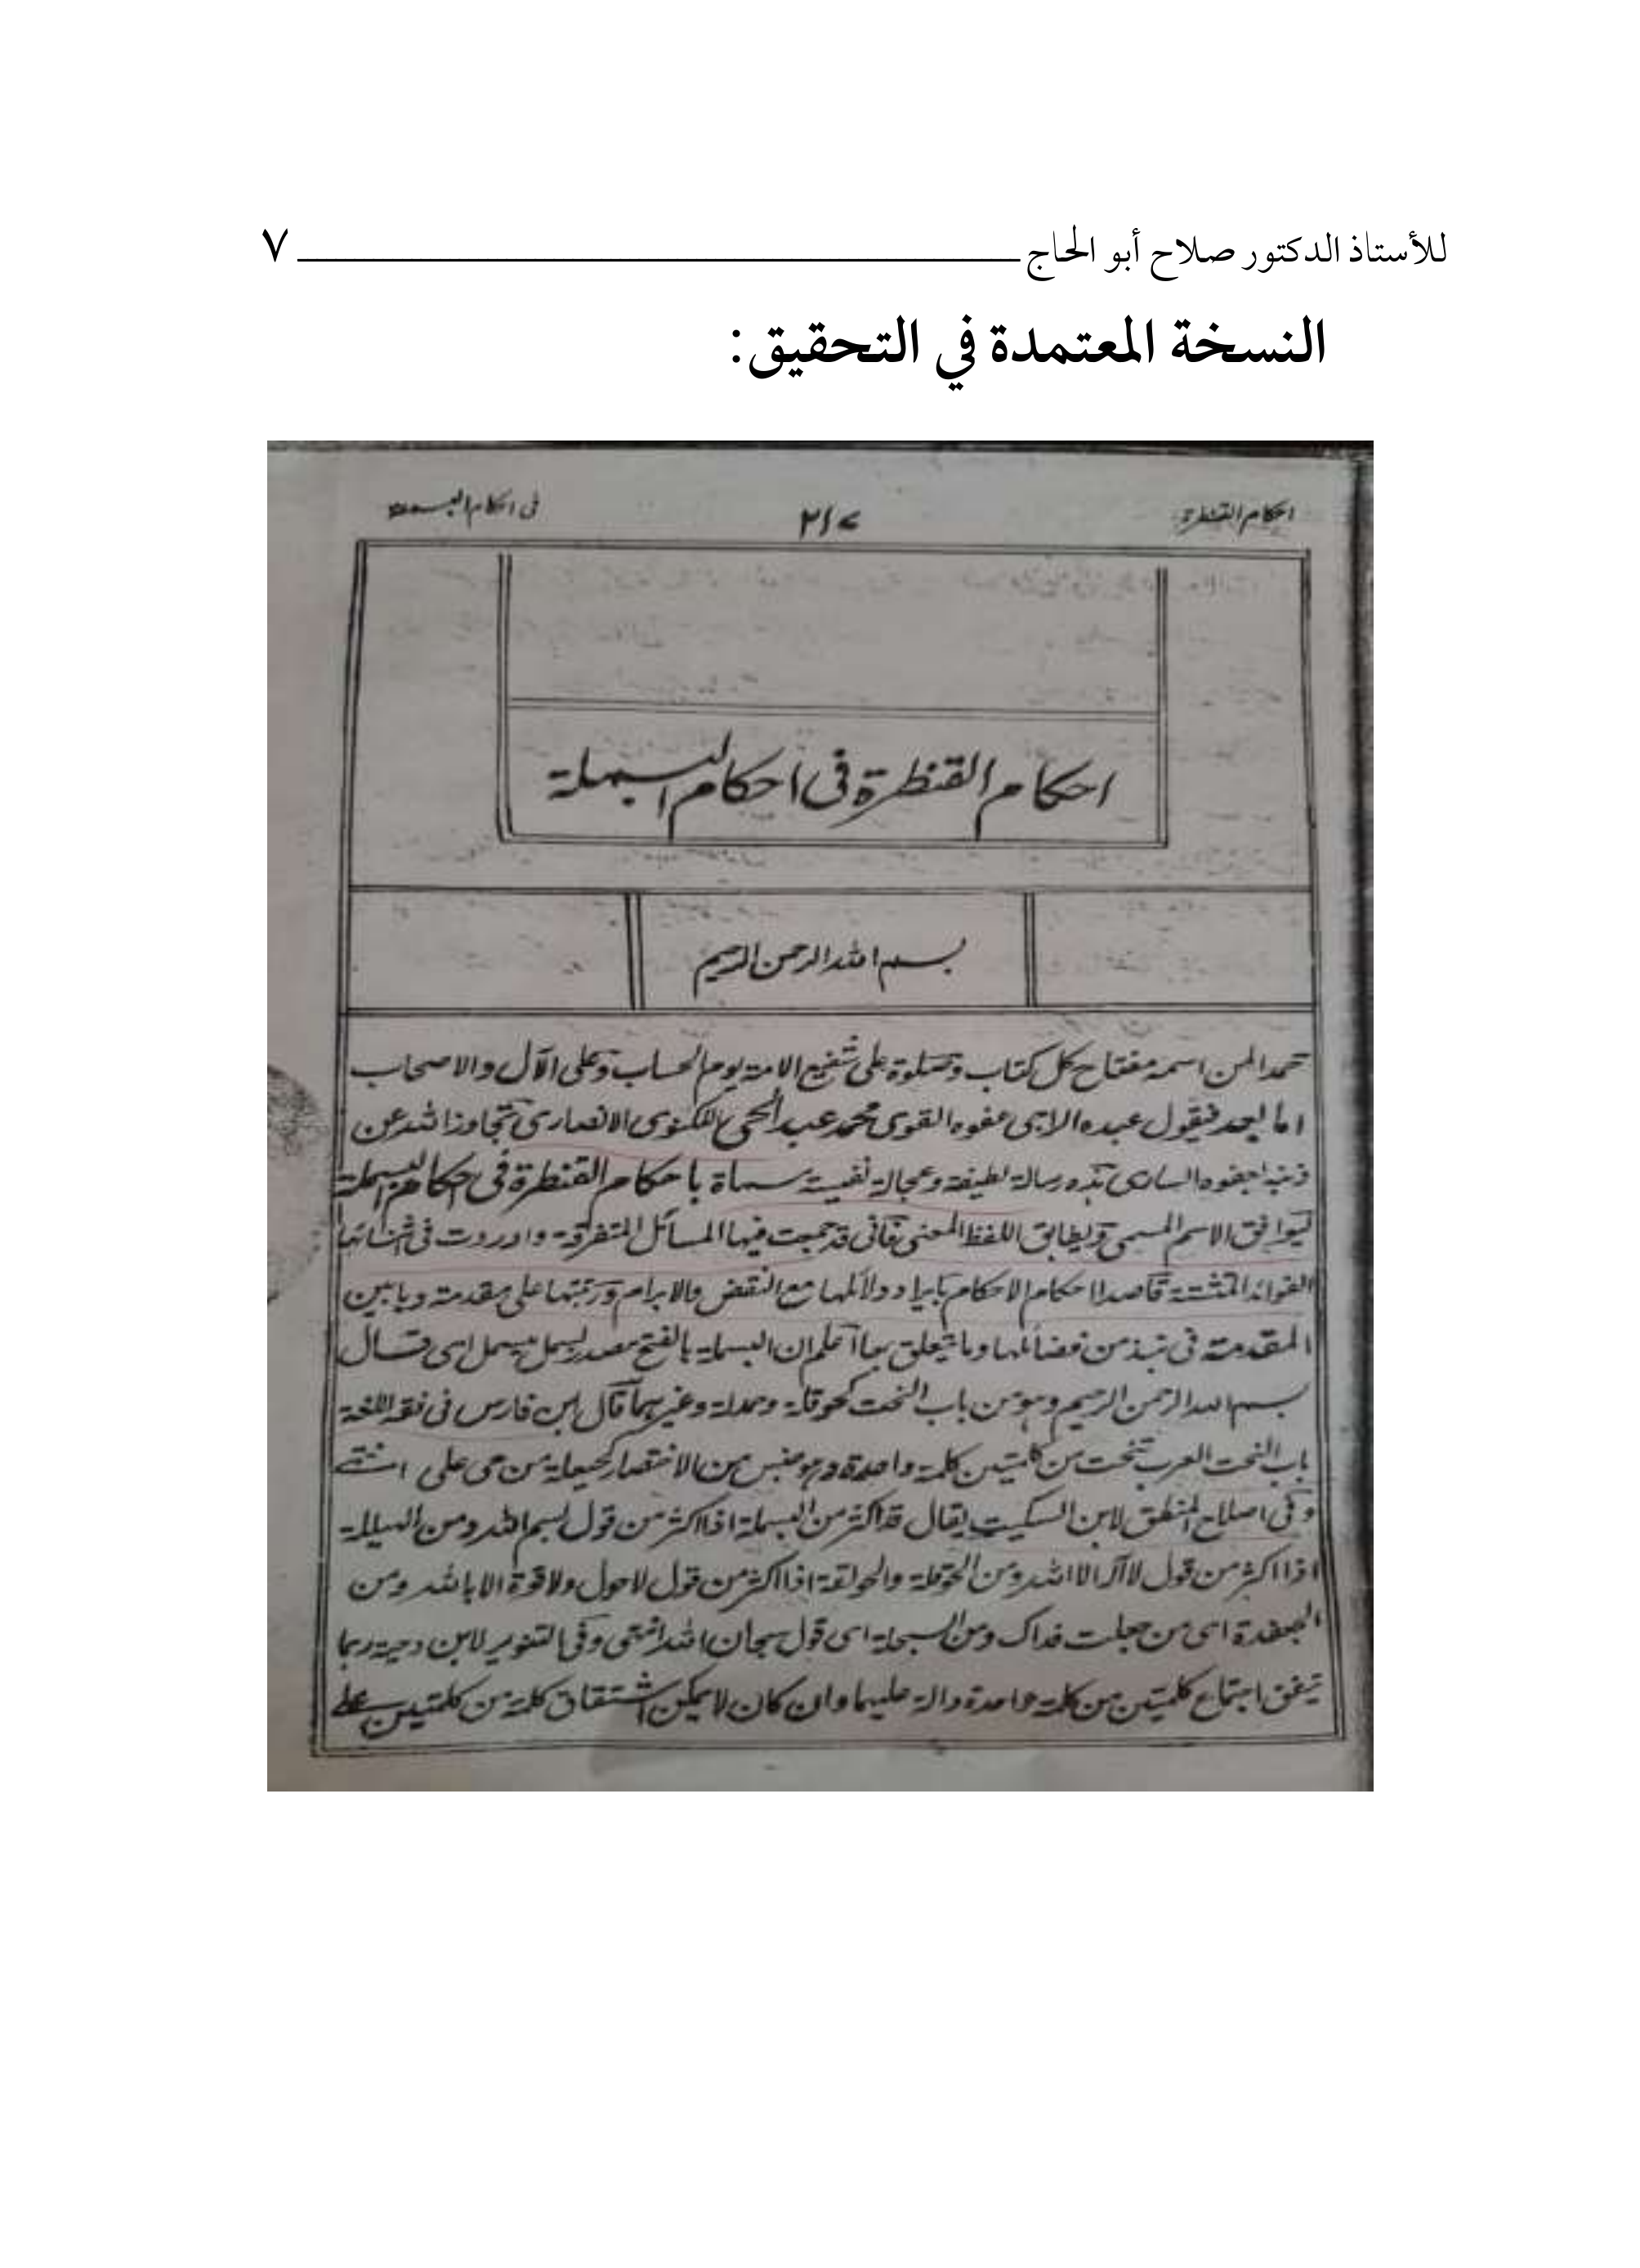 للأستاذ الدكتور صلاح أبو الحاج ٧
النسخة المعتمدة في التحقيق:
احكام القنطرة ٢١٧ فى احكام البسملة
احكام القنطرة فى احكام البسملة
بسم الله الرحمن الرحيم
حمدا لمن اسمه مفتاح كل كتاب وصلوة على شفيع الامة يوم الحساب وعلى الآل والاصحاب
اما بعد فيقول عبده الاجى عفوه القوى محمد عبد الحى اللكنوى الانصارى تجاوز الله عن
ذنبه الجارى هذه رسالة لطيفة وعجالة نفيسة سماة باحكام القنطرة فى احكام البسملة
ليوافق الاسم المسمى ويطابق اللفظ المعنى فانى قد جمعت فيها المسائل المتفرقة واوردت فى اثنائها
الفوائد المتشتتة قاصدا احكام الاحكام بايراد دلائلها مع النقض والابرام ورتبتها على مقدمة وبابين
المقدمة فى نبذ من فضائلها وما يتعلق بها اعلم ان البسملة بالفتح مصدر بسمل يبسمل اى قال
بسم الله الرحمن الرحيم وهو من باب النحت كحوقلة وحمدلة وغيرهما قال ابن فارس فى فقه اللغة
باب النحت العرب تنحت من كلمتين كلمة واحدة وهو جنس من الاختصار كحيعلة من حى على انتهى
وفى اصلاح المنطق لابن السكيت يقال قد اكثر من البسملة اذا اكثر من قول بسم الله ومن الهيللة
اذا اكثر من قول لا اله الا الله ومن الحوقلة والحولقة اذا اكثر من قول لا حول ولا قوة الا بالله ومن
الجعفدة اى من جعلت فداك ومن السبحلة اى قول سبحان الله انتهى وفى التنوير لابن دحية ربما
يتفق اجتماع كلمتين من كلمة واحدة دالة عليهما وان كان لا يمكن اشتقاق كلمة من كلمتين على